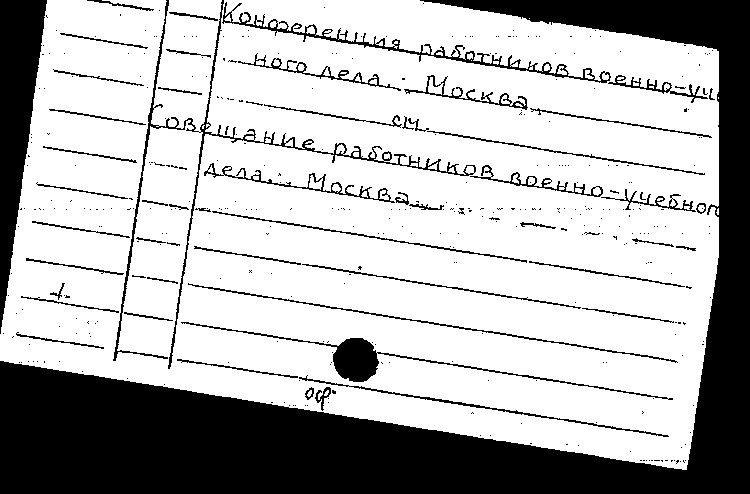 Конференция работников военно-уче
ного дела.: Москва.
см.
Совещание работников военно-учебного
дела.: Москва.
оф.